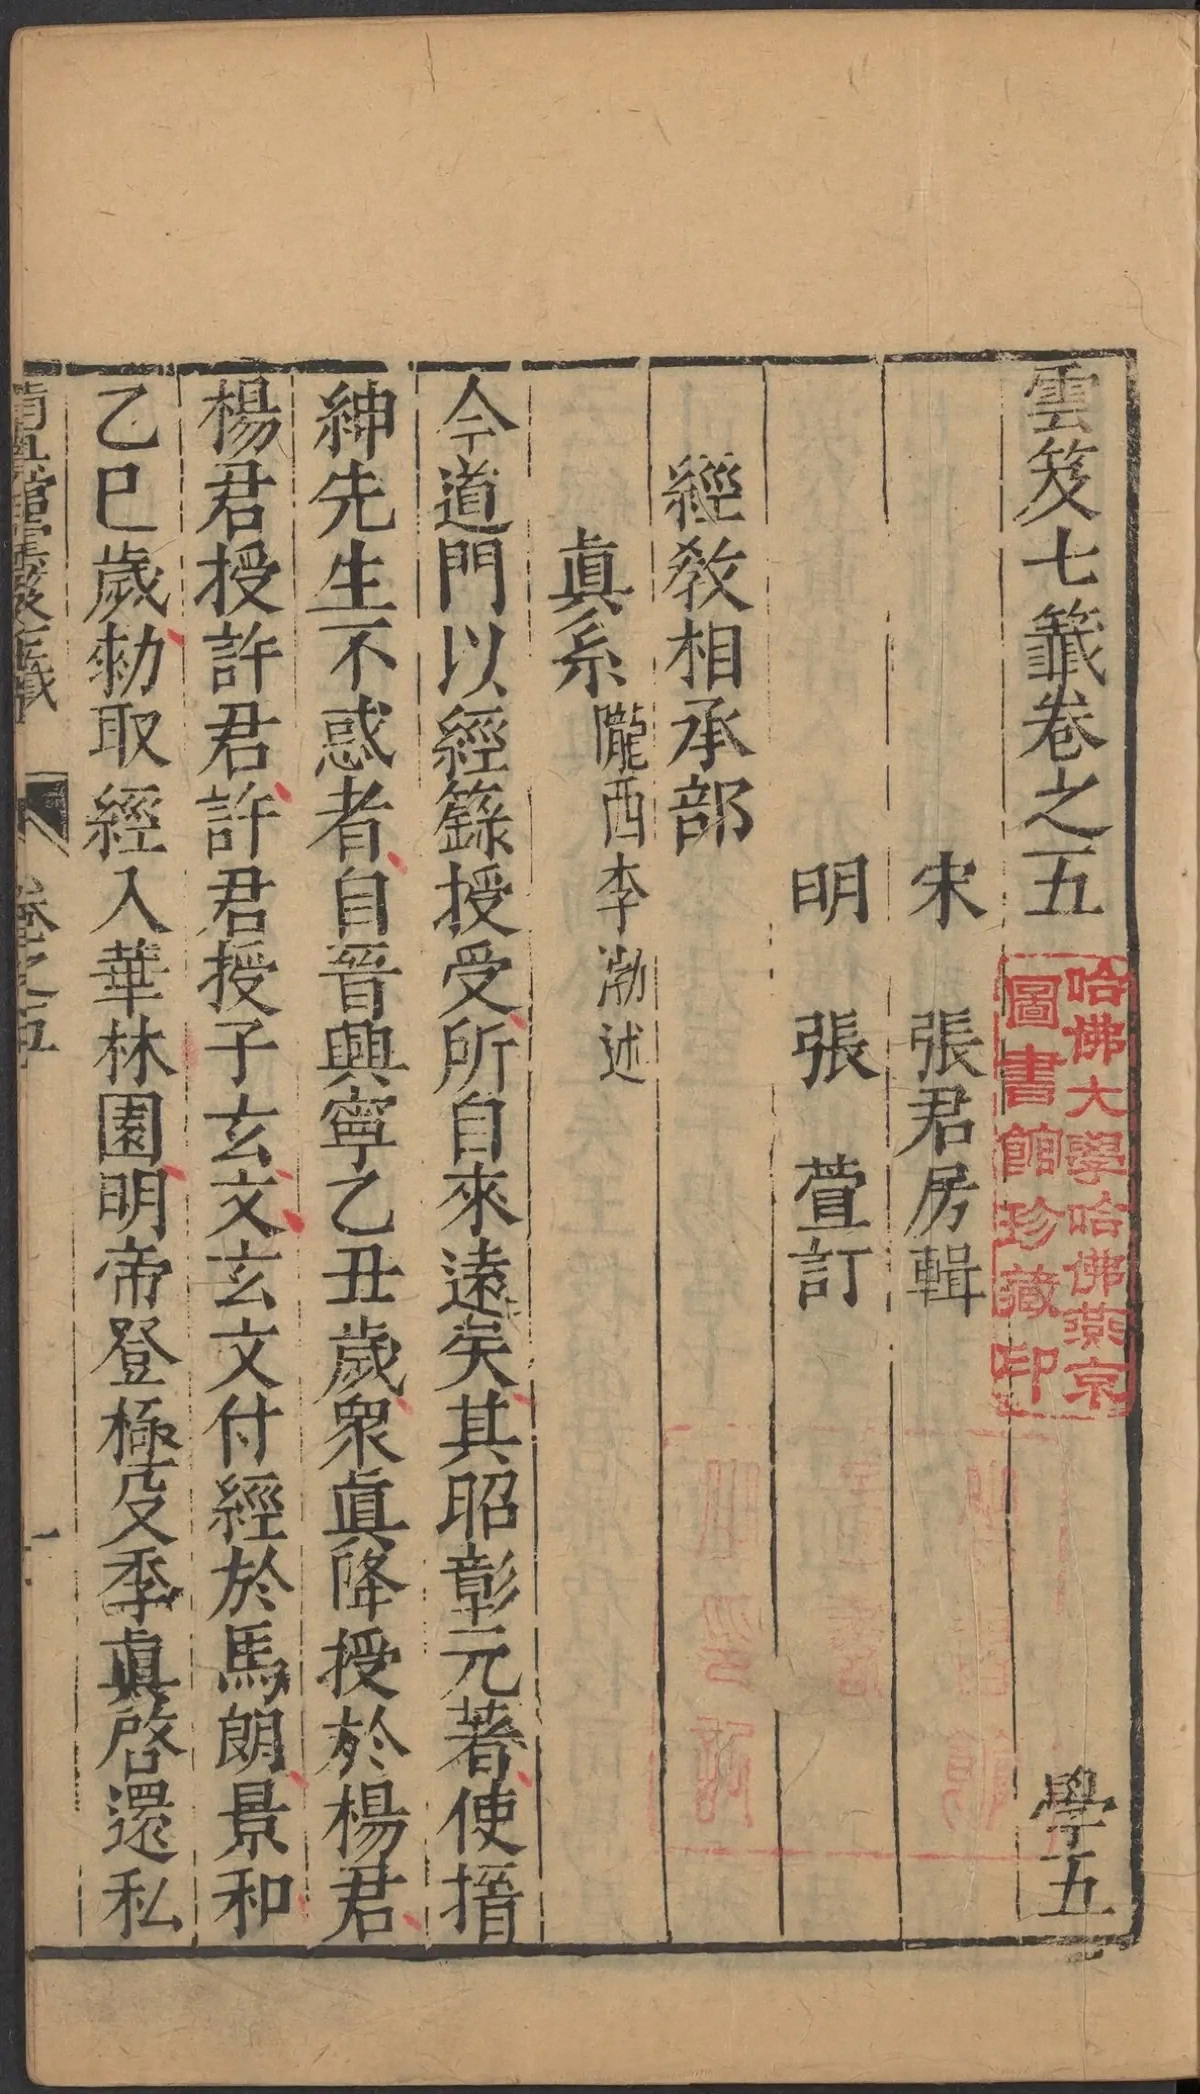 雲笈七籤卷之五 學五
宋 張君房輯
明 張萱訂
經教相承部
眞系 隴西李渤述
今道門以經籙授受所自來遠矣其昭彰元著使搢
紳先生不惑者自晉興寧乙丑歲衆眞降授於楊君
楊君授許君許君授子玄文玄文付經於馬朗景和
乙巳歲勑取經入華林園明帝登極殳季眞啓還私
卷之五
一
哈佛大學哈佛燕京
圖書館珍藏印